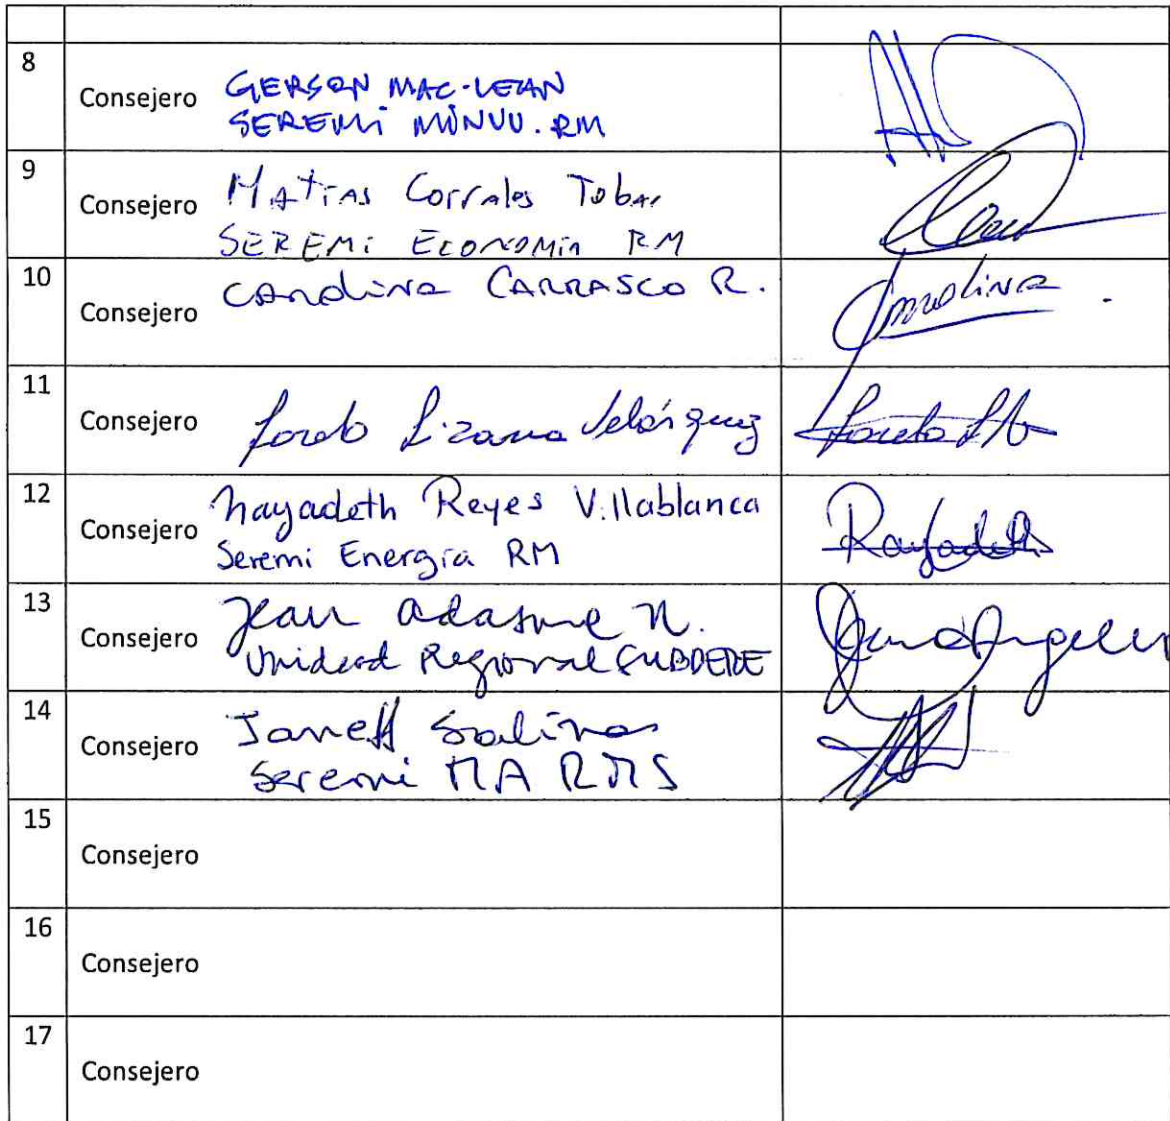 8
Consejero GERSON MAC-LEAN
SEREMI MINVU. RM
9
Consejero Matias Corrales Tobar
SEREMI ECONOMIA RM
10
Consejero Carolina CARRASCO R.
Carolina
11
Consejero Loreto Lizana Velásquez
Loreto
12
Consejero Nayadeth Reyes Villablanca
Seremi Energía RM
13
Consejero Jean Adasme N.
Unidad Regional SUBDERE
14
Consejero Janett Salinas
Seremi MA RMS
15
Consejero
16
Consejero
17
Consejero